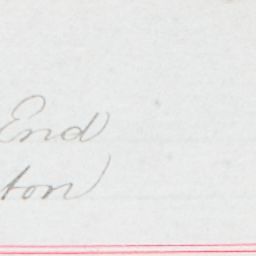 End
ton